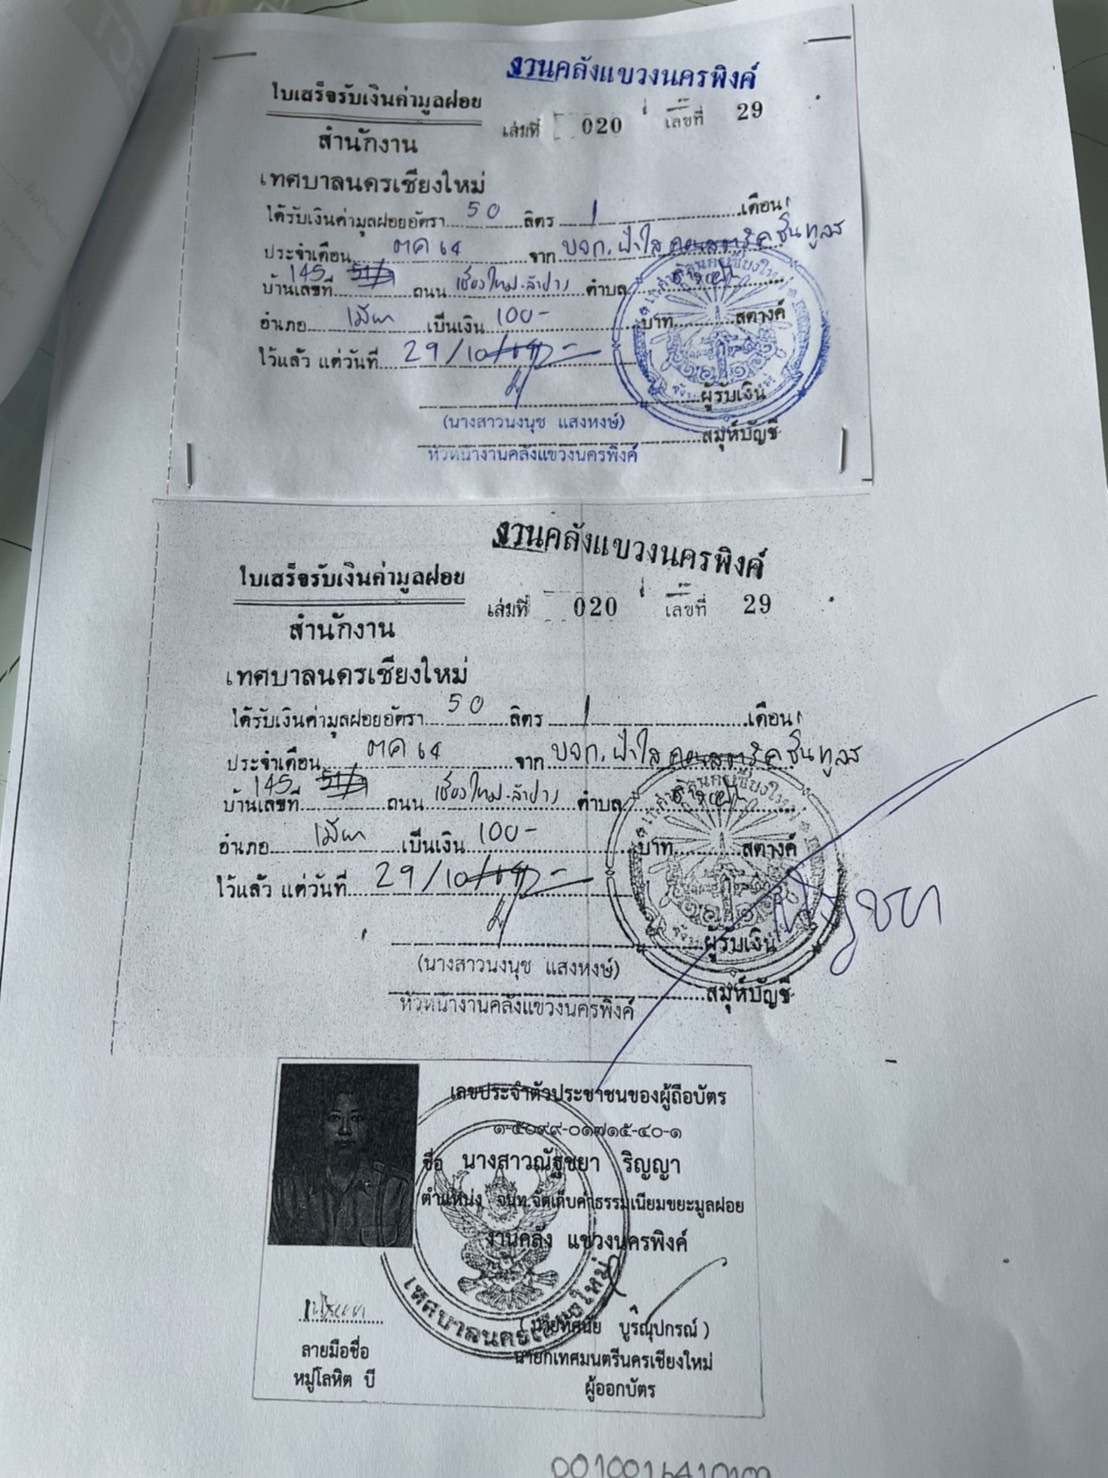 งานคลังแขวงนครพิงค์
ใบเสร็จรับเงินค่ามูลฝอย
เล่มที่ 020 เลขที่ 29
สำนักงาน
เทศบาลนครเชียงใหม่
ได้รับเงินค่ามูลฝอยอัตรา 50 ลิตร 1 เดือน
ประจำเดือน ตค 64 จาก บจก. ฟ้าใส
บ้านเลขที่ 145 ถนน เชียงใหม่-ลำปาง ตำบล
อำเภอ เมือง เป็นเงิน 100- บาท สตางค์
ไว้แล้ว แต่วันที่ 29/10/
ผู้รับเงิน
(นางสาวนงนุช แสงหงษ์) สมุห์บัญชี
หัวหน้างานคลังแขวงนครพิงค์
งานคลังแขวงนครพิงค์
ใบเสร็จรับเงินค่ามูลฝอย
เล่มที่ 020 เลขที่ 29
สำนักงาน
เทศบาลนครเชียงใหม่
ได้รับเงินค่ามูลฝอยอัตรา 50 ลิตร 1 เดือน
ประจำเดือน ตค 64 จาก บจก. ฟ้าใส
บ้านเลขที่ 145 ถนน เชียงใหม่-ลำปาง ตำบล
อำเภอ เมือง เป็นเงิน 100- บาท สตางค์
ไว้แล้ว แต่วันที่ 29/10/
ผู้รับเงิน
(นางสาวนงนุช แสงหงษ์) สมุห์บัญชี
หัวหน้างานคลังแขวงนครพิงค์
เลขประจำตัวประชาชนของผู้ถือบัตร
๑-๕๐๙๙-๐๑๗๑๕-๔๐-๑
ชื่อ นางสาวณัฐชยา ริญญา
ตำแหน่ง จนท.จัดเก็บค่าธรรมเนียมขยะมูลฝอย
งานคลัง แขวงนครพิงค์
เทศบาลนครเชียงใหม่
บูรณุปกรณ์ )
ลายมือชื่อ นายกเทศมนตรีนครเชียงใหม่
หมู่โลหิต บี ผู้ออกบัตร